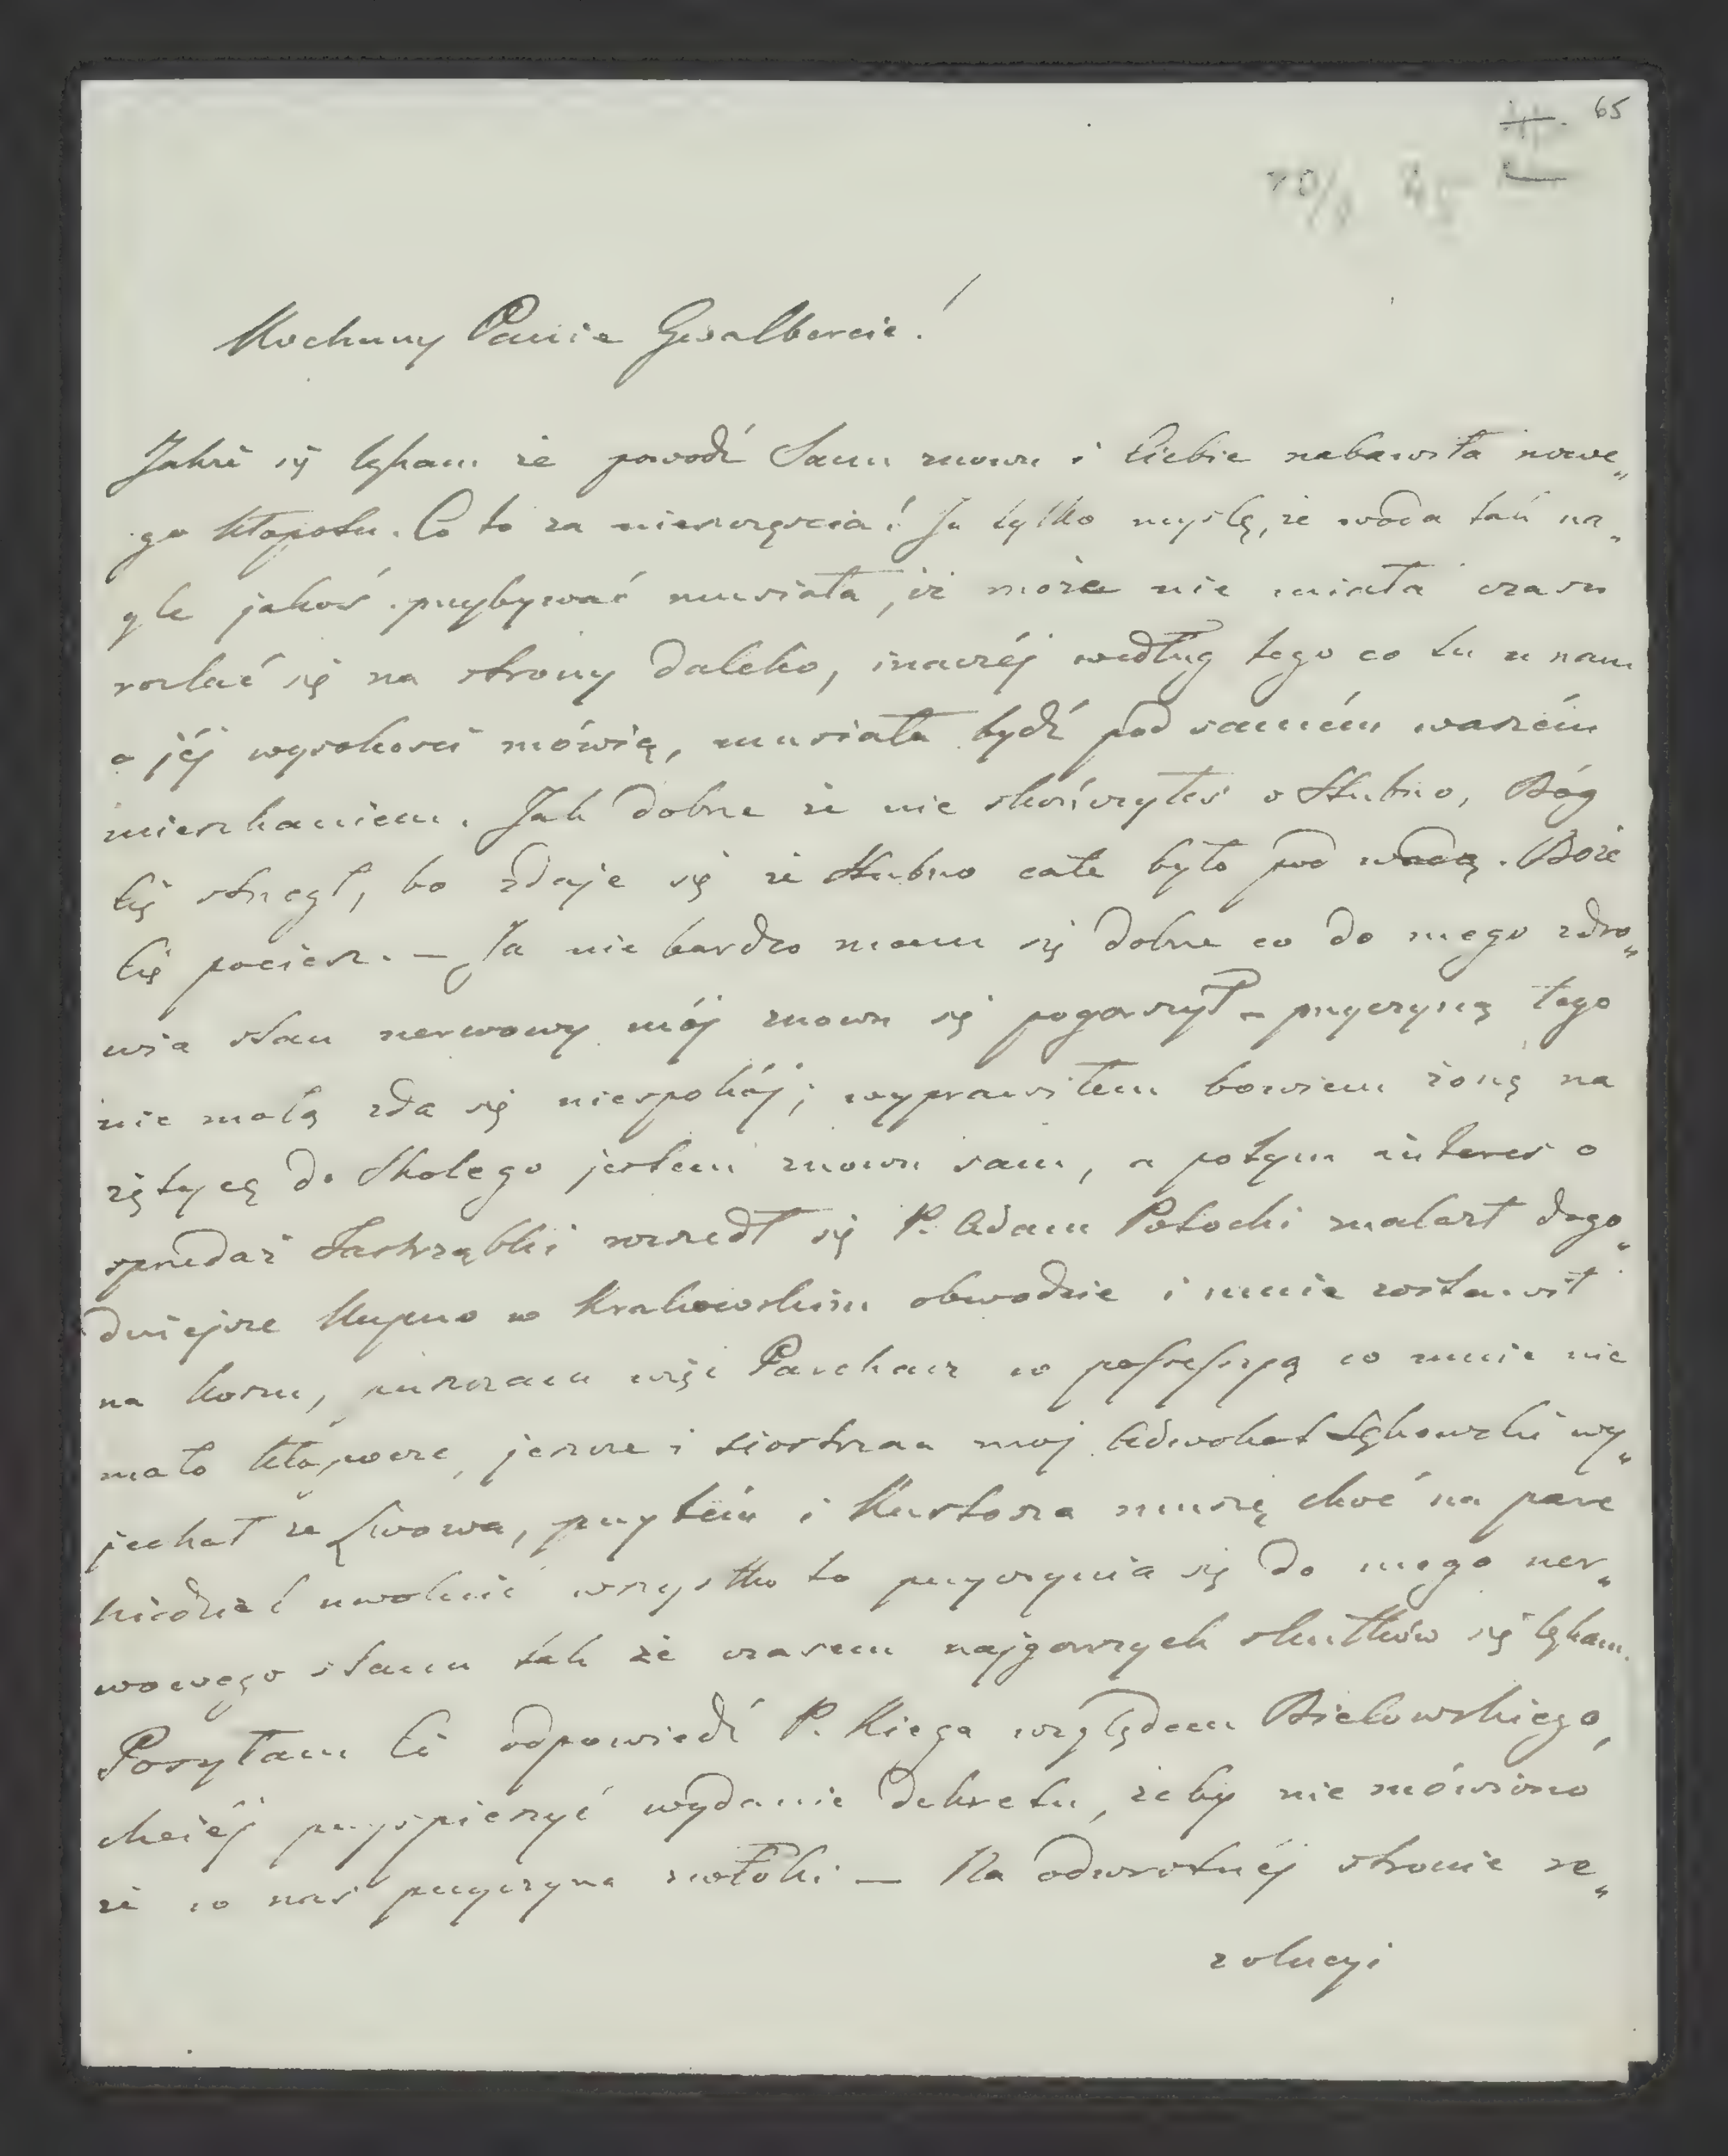 65
Kochany Panie Gwalbercie!
Jakże się lękam że powódź Sanu znowu i Ciebie nabawiła nowe„
go kłopotu. Co to za nieszczęścia! Ja tylko myślę, że woda tak na„
gle jakoś przybywać musiała, iż może nie miała czasu
rozlać się na strony daleko, inaczéj według tego co tu u nam
o jéj wysokosci mówią, musiała bydź pod saméin waszéin
mieszkaniem. Jak dobrze że nie skończyłeś o Stubno, Bóg
Cię strzegł, bo zdaje się że Stubno całe było pod wodą. Boże
Cię pociesz. — Ja nie bardzo mam się dobrze co do mego zdro„
wia stan nerwowy mój znowu się pogorszył – przyczyną tego
nie małą zda się niespokój; wyprawiłem bowiem żonę na
żętycę do Skolego jestem znowu sam, a potym interes o
sprzedaż Jastrząbki rozszedł się P. Adam Potocki znalazł dogo„
dniejsze kupno w Krakowskim obwodzie i mnie zostawił
na koszu, puszczam więc Parchacz w possessyą co mnie nie
mało kłopocze, jeszcze i siostrzan moj Adwokat wy„
jechał ze Lwowa, przytém i Kustosza muszę choć na parę
niedziel uwolnić wszystko to przyczynia się do mego ner„
wowego stanu tak że czasem najgorszych skutków się lękam.
Posyłam Ci odpowiedź P. względem Bielowskiego,
chciéj przyspieszyć wydanie dekretu, żeby nie mówiono
że w nas przyczyna zwłoki — Na odwrotnéj stronie re„
zolucyi